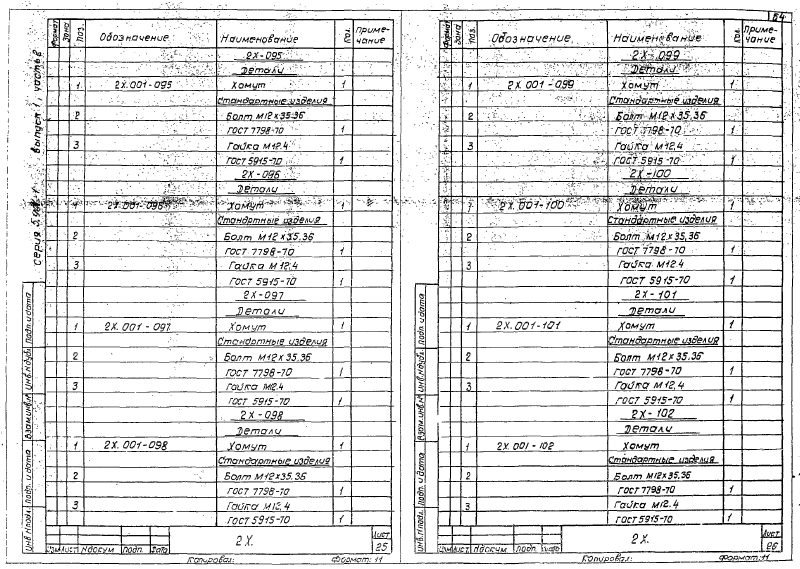 64
Серия 3. выпуск 1, часть 6
Формат Зона Поз. Обозначение Наименование Кол. Приме-
чание
2Х-095
Детали
1 2Х.001-095 Хомут 1
Стандартные изделия
2 Болт М12х35.36
ГОСТ 7798-70 1
3 Гайка М12.4
ГОСТ 5915-70 1
2Х-096
Детали
1 2Х.001-096 Хомут 1
Стандартные изделия
2 Болт М12х35.36
ГОСТ 7798-70 1
3 Гайка М12.4
ГОСТ 5915-70 1
2Х-097
Детали
1 2Х.001-097 Хомут 1
Стандартные изделия
2 Болт М12х35.36
ГОСТ 7798-70 1
3 Гайка М12.4
ГОСТ 5915-70 1
2Х-098
Детали
1 2Х.001-098 Хомут 1
Стандартные изделия
2 Болт М12х35.36
ГОСТ 7798-70 1
3 Гайка М12.4
ГОСТ 5915-70 1
Инв.№подл. Подп. и дата Взам.инв.№ Инв.№дубл. Подп. и дата
Изм Лист №докум Подп. Дата
2Х.
Лист
25
Копировал: Формат: 11
Формат Зона Поз. Обозначение Наименование Кол. Приме-
чание
2Х-099
Детали
1 2Х.001-099 Хомут 1
Стандартные изделия
2 Болт М12х35.36
ГОСТ 7798-70 1
3 Гайка М12.4
ГОСТ 5915-70 1
2Х-100
Детали
1 2Х.001-100 Хомут 1
Стандартные изделия
2 Болт М12х35.36
ГОСТ 7798-70 1
3 Гайка М12.4
ГОСТ 5915-70 1
2Х-101
Детали
1 2Х.001-101 Хомут 1
Стандартные изделия
2 Болт М12х35.36
ГОСТ 7798-70 1
3 Гайка М12.4
ГОСТ 5915-70 1
2Х-102
Детали
1 2Х.001-102 Хомут 1
Стандартные изделия
2 Болт М12х35.36
ГОСТ 7798-70 1
3 Гайка М12.4
ГОСТ 5915-70 1
Инв.№подл. Подп. и дата Взам.инв.№ Инв.№дубл. Подп. и дата
Изм Лист №докум Подп. Дата
2Х.
Лист
26
Копировал: Формат: 11